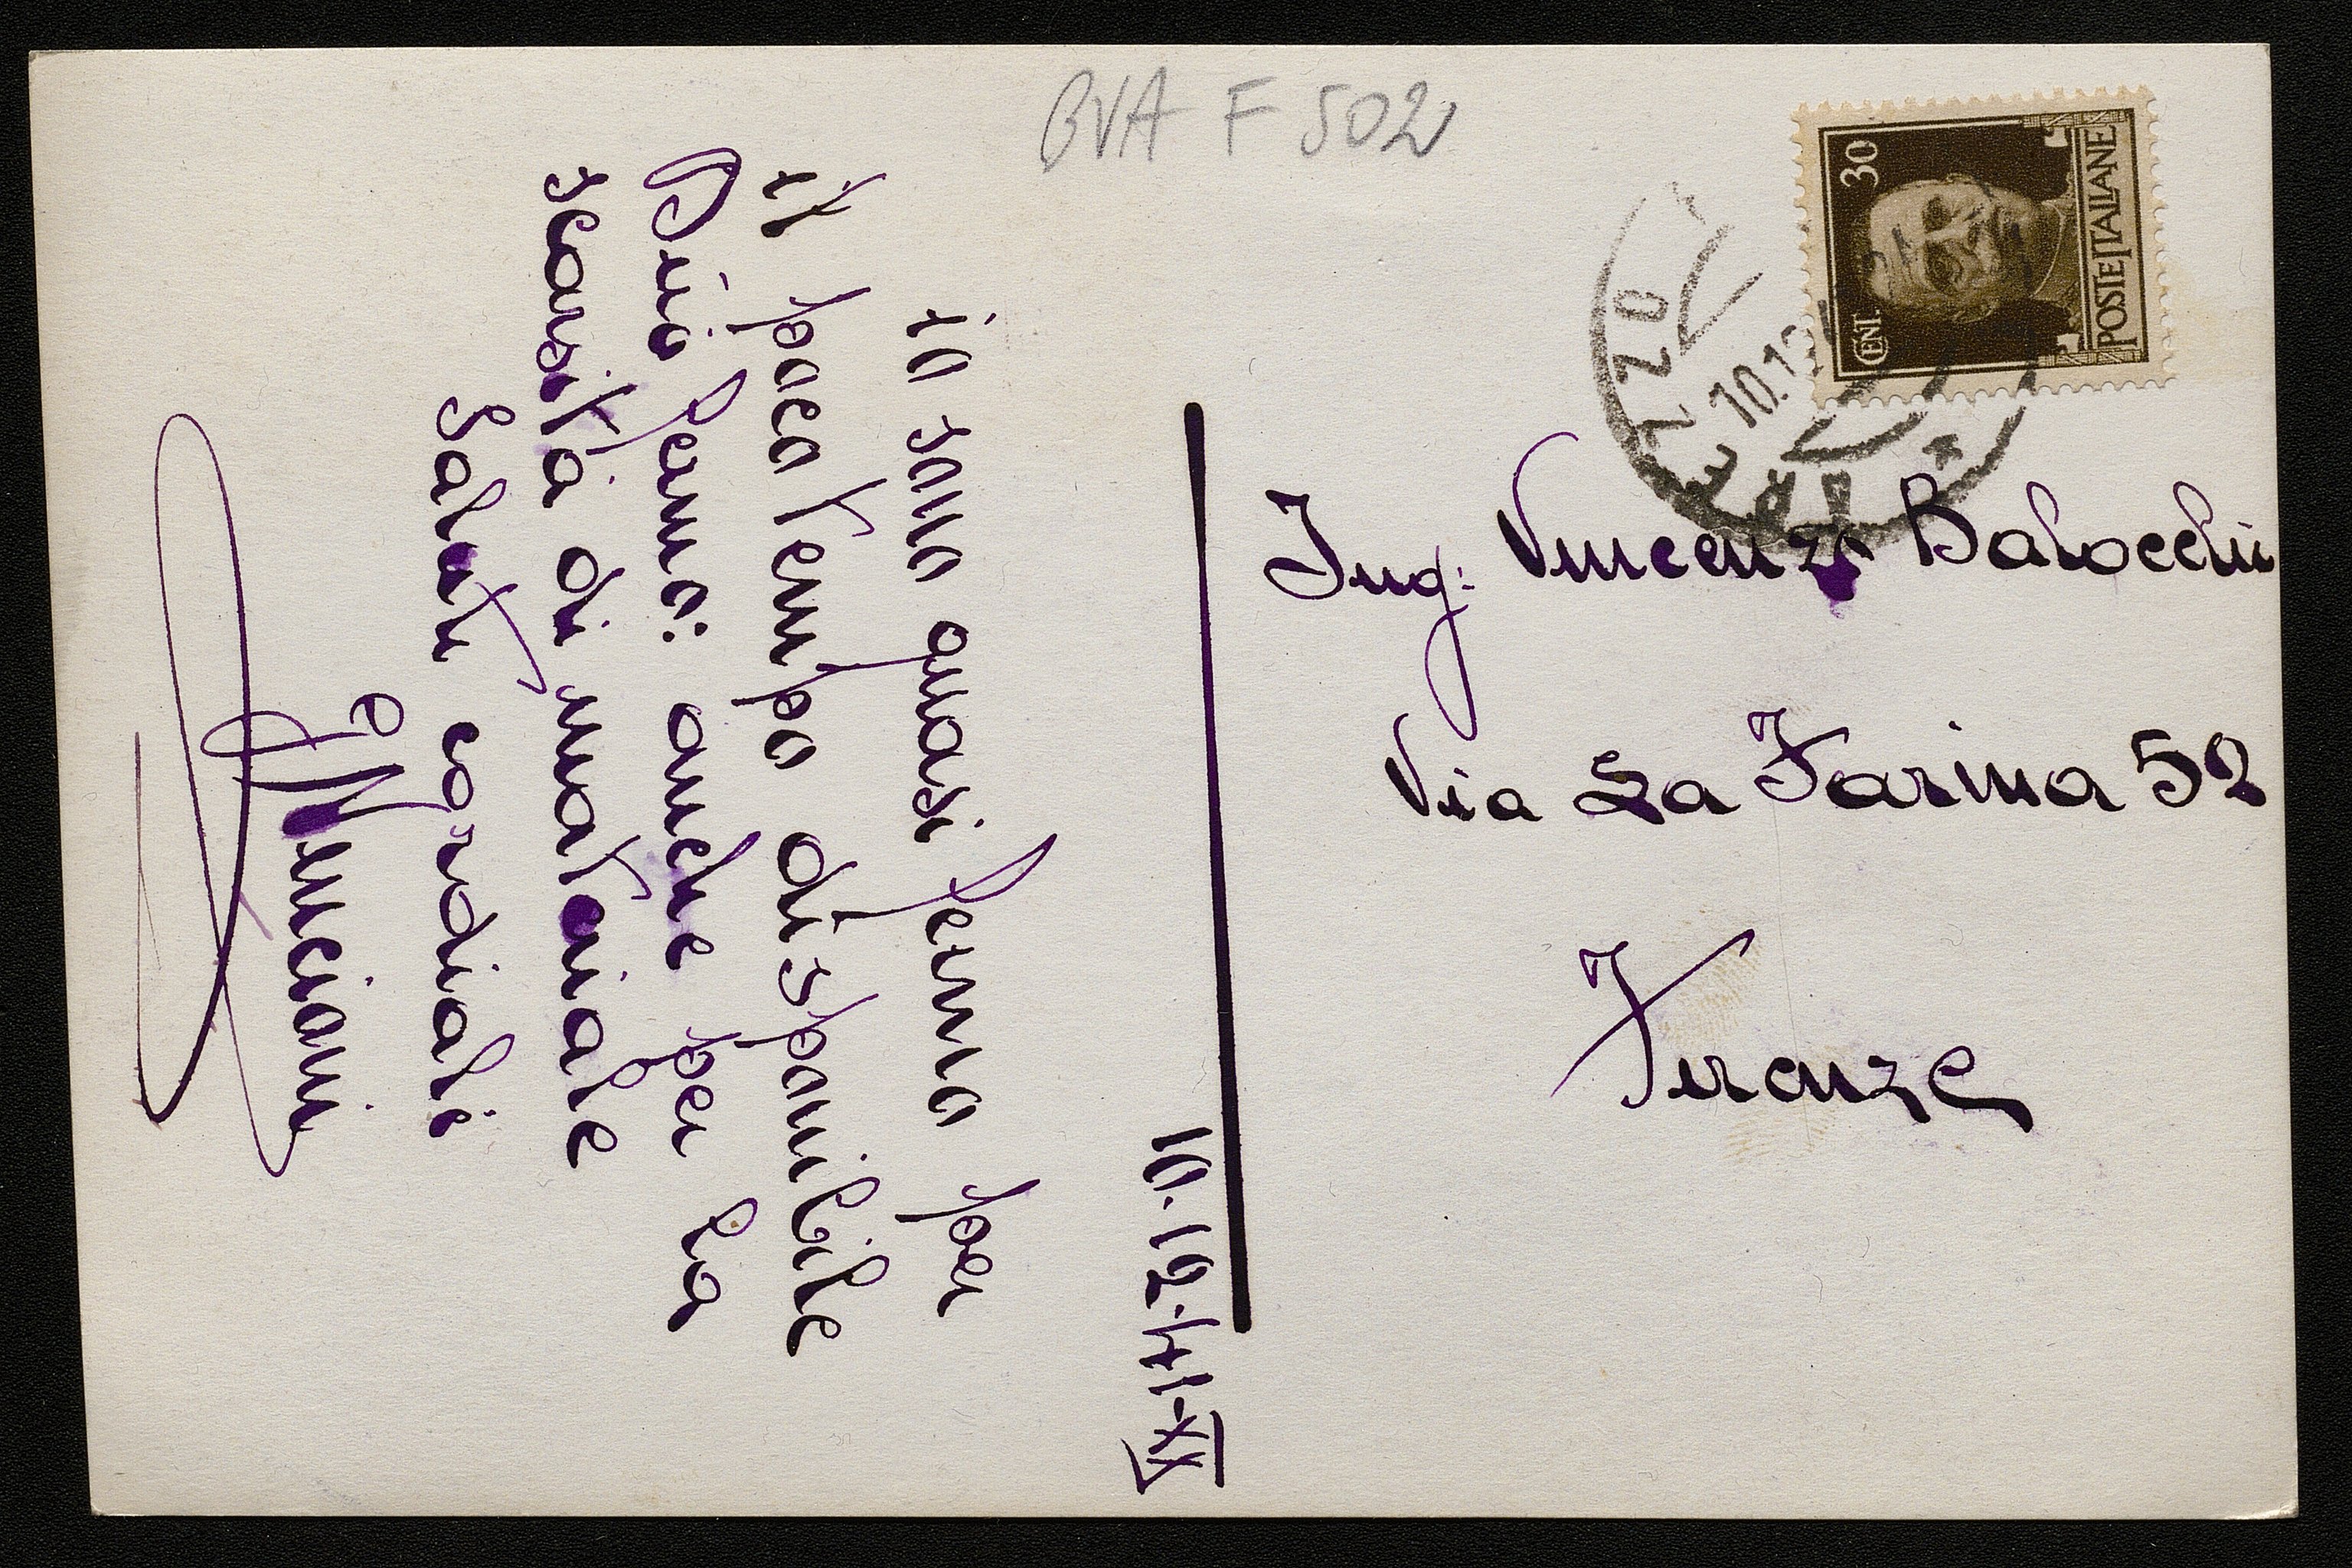 BVA F 502
CENT. 30
POSTE ITALIANE
AREZZO
10.12
Ing: Vincenzo Balocchi
Via La Farina 52
Firenze
10.12.41-XX
io sono quasi fermo per
il poco tempo disponibile
Mio fermo: anche per la
scarsità di materiale
Saluti cordiali